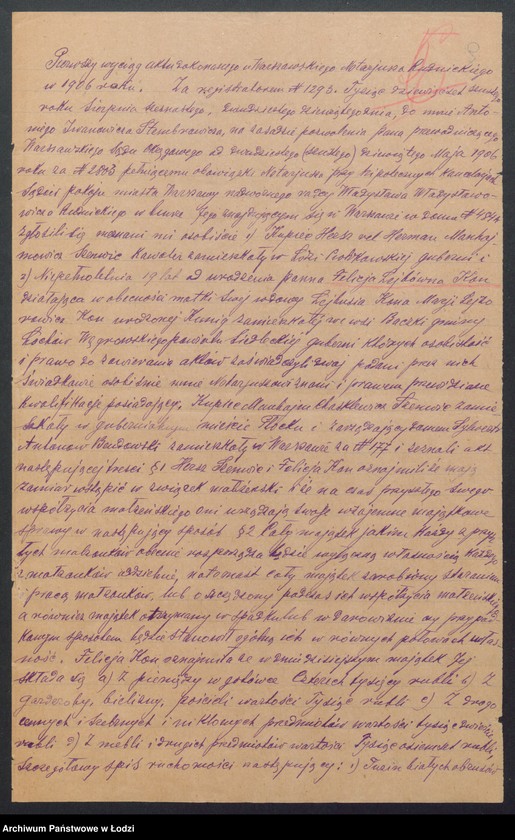 Pierwszy wyciąg aktu dokonanego u Warszawskiego Notarjusza Reźnickiego
w 1906 roku. Za rejestratorem # 1293. Tysiąc dziewięćset szóstego
roku Sierpnia szesnastego, dwudziestego dziewiątego dnia, do mnie Anto-
niego Iwanowicza Stembrowicza, na zasadzie pozwolenia Pana prezesa
Warszawskiego Sądu Okręgowego z dwudziestego (szóstego) dziewiątego Maja 1906
roku za # 2843 pełniącemu obowiązki Notarjusza przy hypotecznych Kancelarjach
Sędzi pokoju miasta Warszawy radcy Władysława Władysławo-
wicza Reźnickiego w biurze Jego znajdującym się w Warszawie w domu #
zgłosili się nieznani mi osobiście 1) Kupiec Hersz vel Herman Manhaj-
mowicz Kawaler zamieszkały w Łodzi Piotrkowskiej gubernii i
2) Niepełnoletnia 19 lat od urodzenia panna Felicja Lejbówna Kon
działająca w obecności matki swej wdowy Lejbusia Kona Maryi
Kon urodzonej zamieszkałej we wsi Baczki gminy
Łochów Węgrowskiego powiatu Siedleckiej guberni których osobistość
i prawo do zawierania aktów zaświadczyli dwaj podani przez nich
świadkowie osobiście mnie Notarjuszowi znani i prawem przewidziane
kwalifikacje posiadający, Kupiec Manhajm Chasklewicz zamie-
szkały w gubernialnym mieście Płocku i zarządzający domem Sylwester
Antonow Budowski zamieszkały w Warszawie za # 177 i zeznali akt
następującej treści § 1 Hersz i Felicja Kon oznajmili że mają
zamiar wstąpić w związek małżeński i że na czas przyszłego swego
współżycia małżeńskiego oni urządzają swoje wzajemne majątkowe
sprawy w następujący sposób § 2 Cały majątek jakim każdy z przy-
szłych małżonków obecnie rozporządza będzie wyłączną własnością każdego
z małżonków oddzielnie, natomiast cały majątek zarobiony staraniem
i pracą małżonków, lub oszczędzony podczas ich współżycia małżeńskiego
a również majątek otrzymany w spadku lub w darowiźnie czy przypad-
kowym sposobem będzie stanowił ogólną ich w równych połowach włas-
ność. Felicja Kon oznajmiła że w dniu dzisiejszym majątek Jej
składa się a) Z pieniędzy w gotówce Czterech tysięcy rubli b) Z
garderoby, bielizny, pościeli wartości Tysiąc rubli c) Z drogo-
cennych i srebrnych i niklowych przedmiotów wartości tysiąc dwieście
rubli d) Z mebli i drugich przedmiotów wartości Tysiąc osiemset rubli,
Szczegółowy spis ruchomości następujący: 1) Tuzin białych obrusów
Archiwum Państwowe w Łodzi